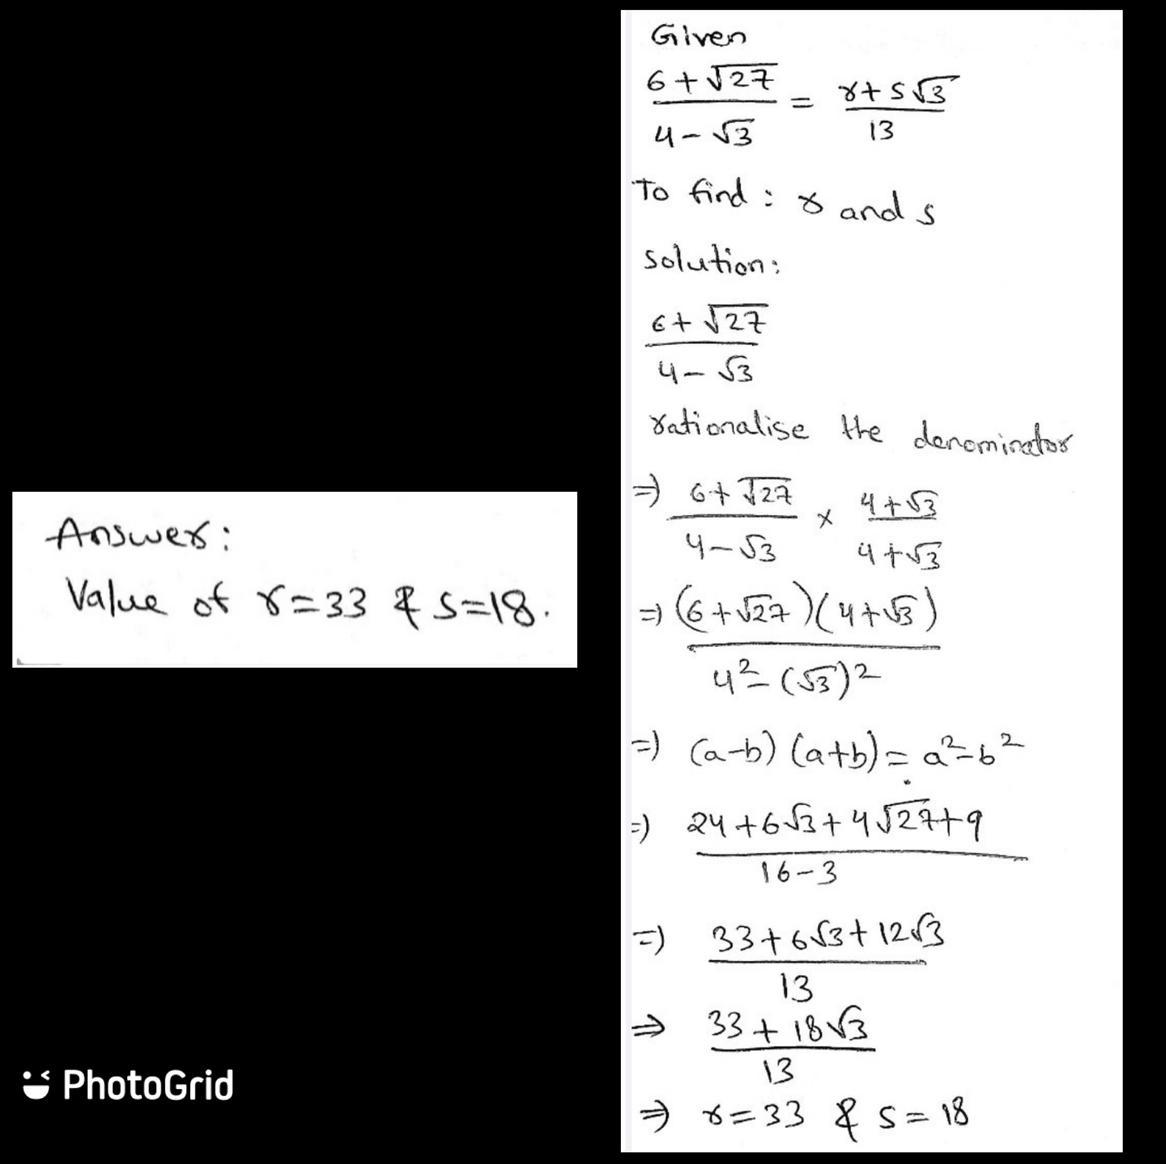 Answer:
Value of r=33 & s=18.
PhotoGrid
Given
6+√27/4-√3 = r+s√3/13
To find: r and s
solution:
6+√27/4-√3
rationalise the denominator
⇒ 6+√27/4-√3 × 4+√3/4+√3
⇒ (6+√27)(4+√3)/4²-(√3)²
⇒ (a-b)(a+b)=a²-b²
⇒ 24+6√3+4√27+9/16-3
⇒ 33+6√3+12√3/13
⇒ 33+18√3/13
⇒ r=33 & s=18